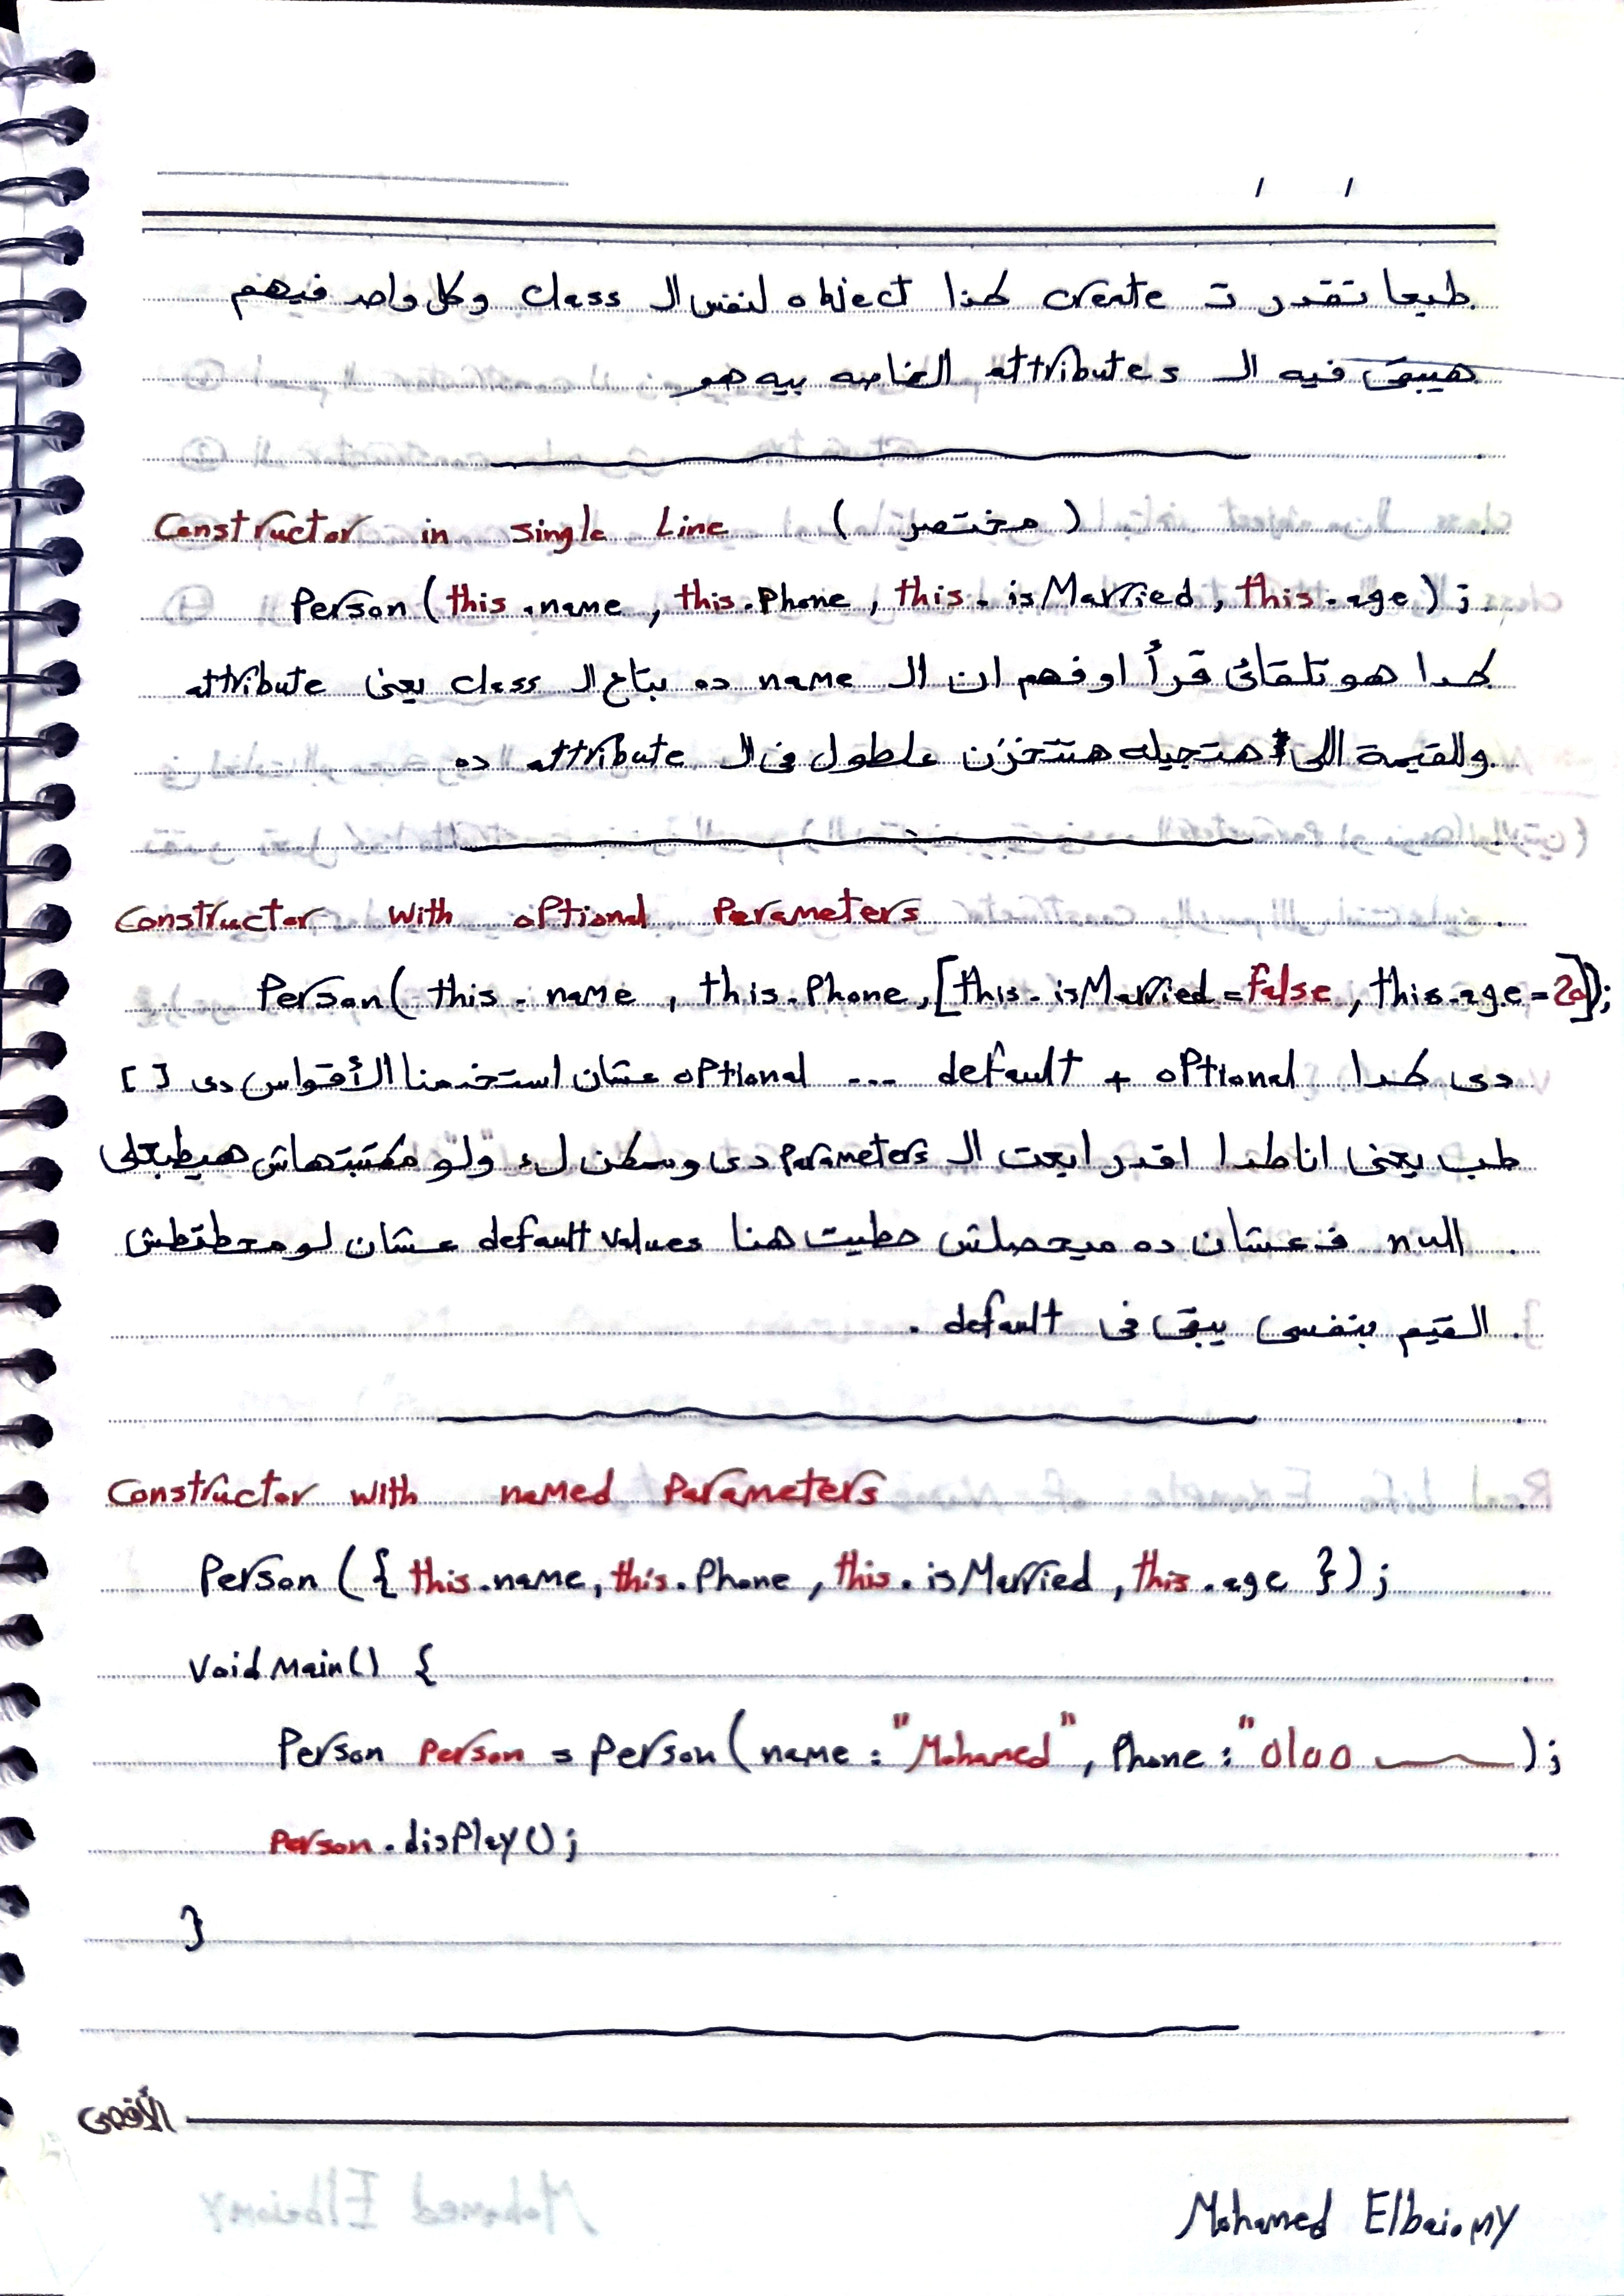 / /
طبعا تقدر ت create كذا object لنفس ال class وكل واحد فيهم
هيبقى فيه ال attributes الخاصه بيه هو
Constructor in single Line ( مختصر )
Person ( this . name , this . Phone , this . isMarried , this . age ) ;
كدا هو تلقائى قرأ او فهم ان ال name ده بتاع ال class يعنى attribute
والقيمة اللى هتجيله هتتخزن علطول فى ال attribute ده
Constructor with optional Parameters
Person( this . name , this . Phone , [this . isMarried = false , this . age = 20]);
دى كدا default + optional ... optional عشان استخدمنا الأقواس دى [ ]
طب يعنى انا كدا اقدر ابعت ال Parameters دى وممكن لاء "ولو مكتبتهاش هيطبعلى
null ف عشان ده ميحصلش حطيت هنا default values عشان لو محطتش
القيم بنفسى يبقى فى default .
Constructor with named Parameters
Person ( { this . name , this . Phone , this . isMarried , this . age } ) ;
void main() {
Person person = person ( name : "Mohamed" , Phone : "0100 ) ;
Person . display () ;
}
الأقصى
Mohamed Elbaiomy